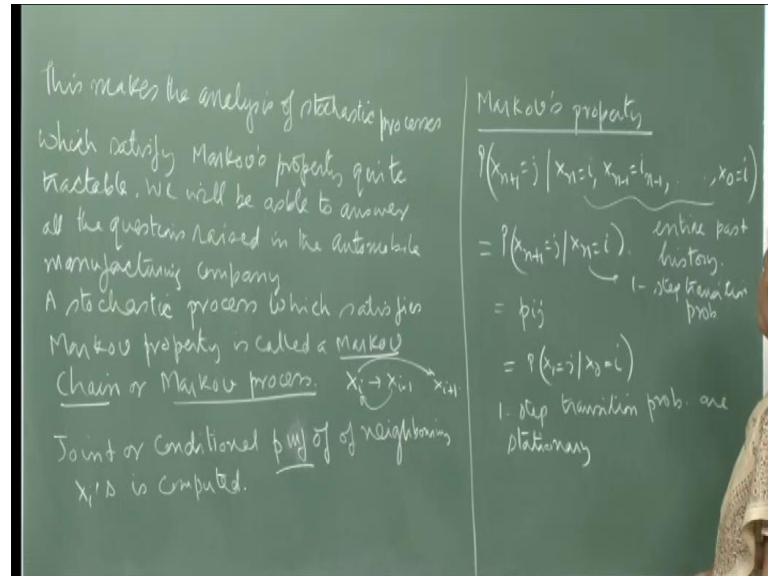 This makes the analysis of stochastic processes
which satisfy Markov's property quite
tractable. We will be able to answer
all the questions raised in the automobile
manufacturing company
A stochastic process which satisfies
Markov property is called a Markov
Chain or Markov process. Xi → Xi-1 Xi+1
Joint or conditional pmf of of neighboring
Xi's is computed.
Markov's property
P(Xn+1=j | Xn=i, Xn-1=in-1, . . . , X0=i)
entire past
= P(Xn+1=j | Xn=i). history.
1-step transition
prob
= pij
= P(X1=j | X0=i)
1-step transition prob. are
stationary